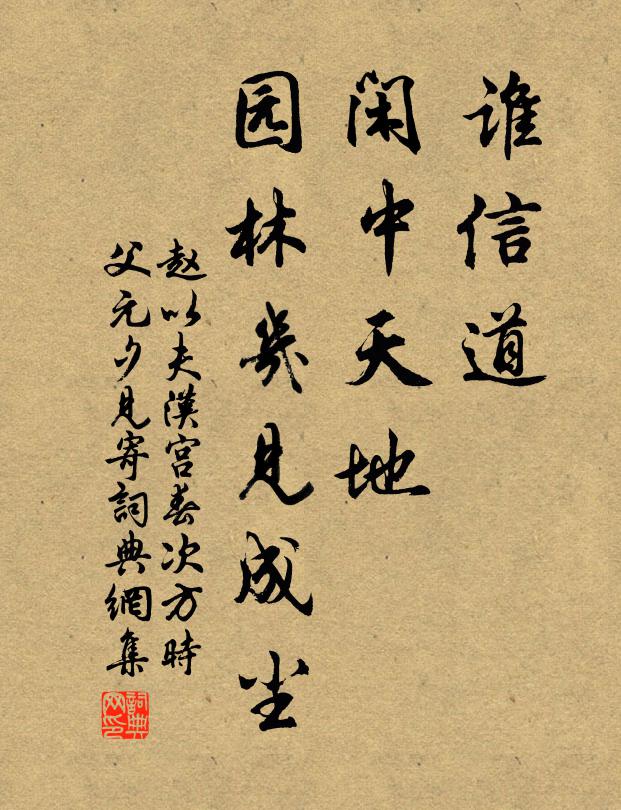 谁信道
闲中天地
园林幾见成尘
赵以夫漢宫春次方時
父元夕见寄詞典網集
詞典网印